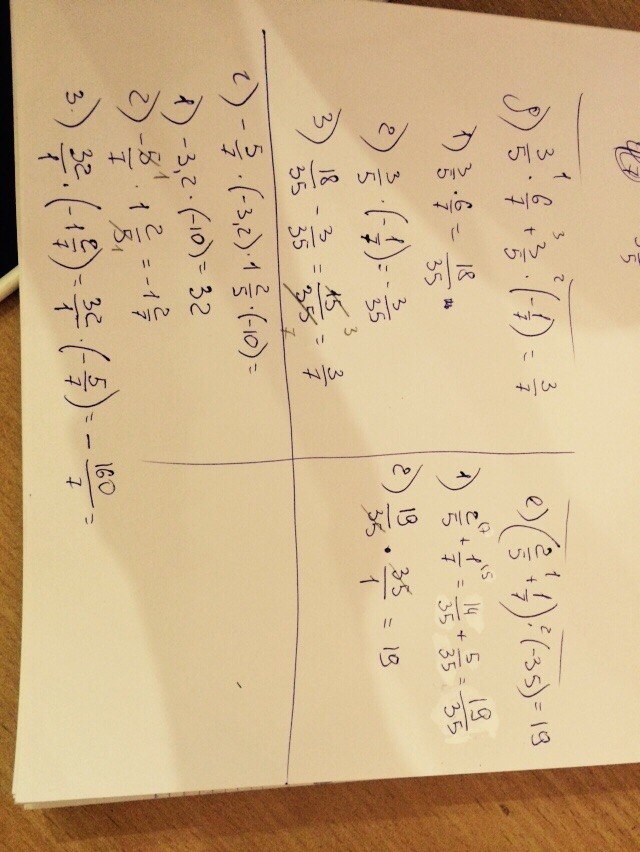 д) 3/5 · 6/7 + 3/5 · (-1/7) = 3/7
1) 3/5 · 6/7 = 18/35
2) 3/5 · (-1/7) = -3/35
3) 18/35 - 3/35 = 15/35 = 3/7
е) (2/5 + 1/7) · (-35) = 19
1) 2/5 + 1/7 = 14/35 + 5/35 = 19/35
2) 19/35 · 35/1 = 19
г) -5/7 · (-3,2) · 1 2/5 · (-10) =
1) -3,2 · (-10) = 32
3) 32/1 · (-1 2/7) = 32/1 · (-5/7) = -160/7 =